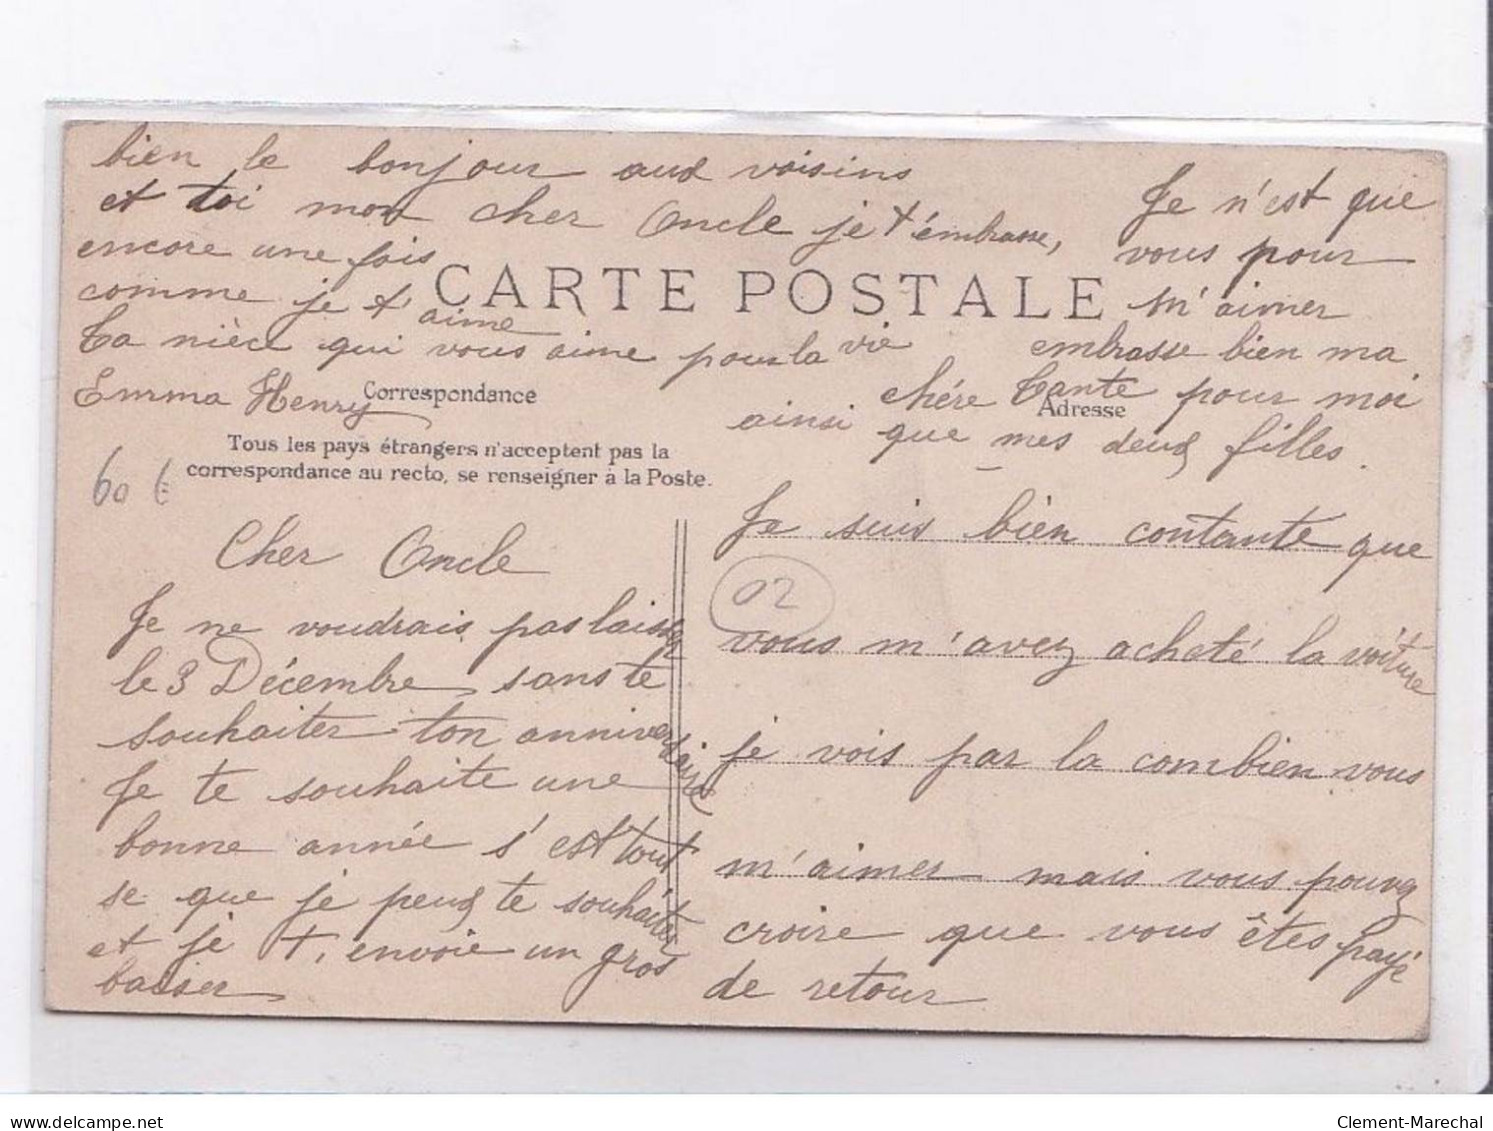 bien le bonjour aux voisins
et toi mon cher Oncle je t'émbrasse,
encore une fois
comme je t'aime
Ta nièce qui vous aime pour la vie
Emma Henry
CARTE POSTALE
Correspondance
Tous les pays étrangers n'acceptent pas la
correspondance au recto, se renseigner à la Poste.
60 €
Cher Oncle
Je ne voudrais pas laisser
le 3 Décembre sans te
souhaiter ton anniversaire
Je te souhaite une
bonne année s'est tout
se que je peux te souhaiter
et je t'envoie un gros
baiser
Je n'est que
vous pour
m'aimer
embrasse bien ma
chére Tante pour moi
Adresse
ainsi que mes deux filles.
Je suis bien contante que
02
vous m'avez acheté la voiture
je vois par la combien vous
m'aimer mais vous pouvez
croire que vous êtes payé
de retour
delcampe.net
Clement-Marechal